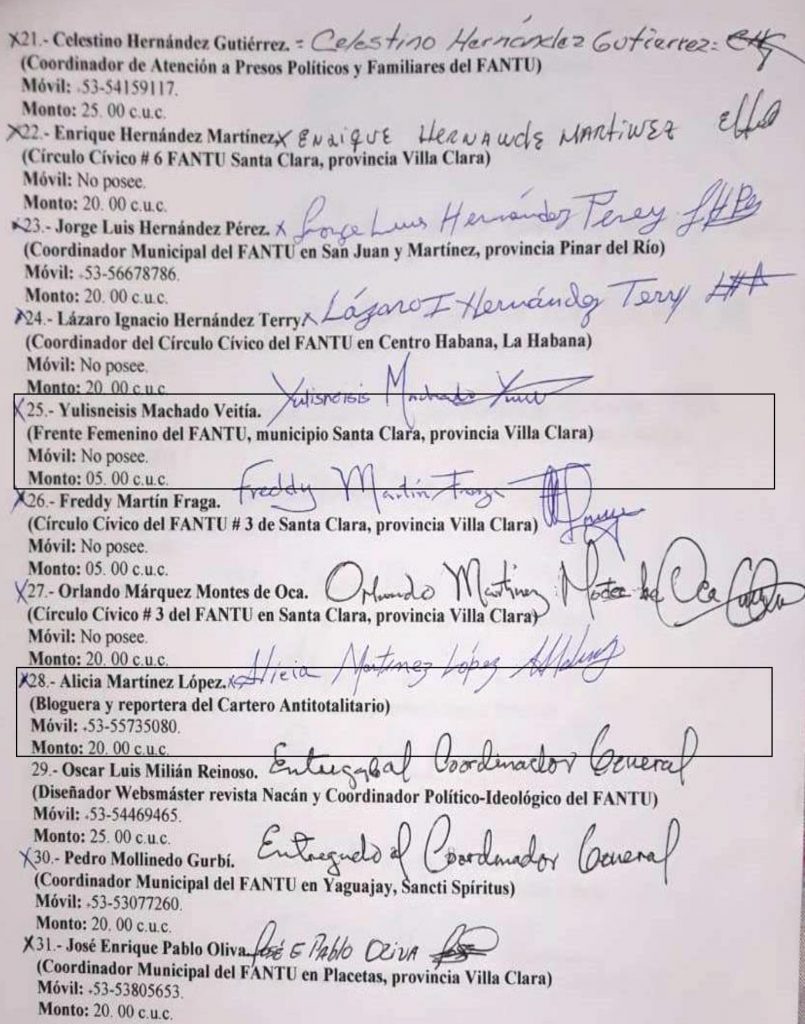 X21.- Celestino Hernández Gutiérrez. = Celestino Hernández Gutierrez:
(Coordinador de Atención a Presos Políticos y Familiares del FANTU)
Móvil: +53-54159117.
Monto: 25. 00 c.u.c.
X22.- Enrique Hernández Martínez X ENRIQUE HERNANDE MARTINEZ
(Círculo Cívico # 6 FANTU Santa Clara, provincia Villa Clara)
Móvil: No posee.
Monto: 20. 00 c.u.c.
X23.- Jorge Luis Hernández Pérez. x Jorge Luis Hernández Perez
(Coordinador Municipal del FANTU en San Juan y Martínez, provincia Pinar del Río)
Móvil: +53-56678786.
Monto: 20. 00 c.u.c.
X24.- Lázaro Ignacio Hernández Terry X Lázaro I Hernández Terry
(Coordinador del Círculo Cívico del FANTU en Centro Habana, La Habana)
Móvil: No posee.
Monto: 20. 00 c.u.c.
X25.- Yulisneisis Machado Veitía. Yulisneisis Machado
(Frente Femenino del FANTU, municipio Santa Clara, provincia Villa Clara)
Móvil: No posee.
Monto: 05. 00 c.u.c.
X26.- Freddy Martín Fraga. Freddy Martín Fraga
(Círculo Cívico del FANTU # 3 de Santa Clara, provincia Villa Clara)
Móvil: No posee.
Monto: 05. 00 c.u.c.
X27.- Orlando Márquez Montes de Oca. Orlando Martinez Montes de Oca
(Círculo Cívico # 3 del FANTU en Santa Clara, provincia Villa Clara)
Móvil: No posee.
Monto: 20. 00 c.u.c.
X28.- Alicia Martínez López. x Alicia Martinez López
(Bloguera y reportera del Cartero Antitotalitario)
Móvil: +53-55735080.
Monto: 20. 00 c.u.c.
29.- Oscar Luis Milián Reinoso. Coordinador General
(Diseñador Websmáster revista Nacán y Coordinador Político-Ideológico del FANTU)
Móvil: +53-54469465.
Monto: 25. 00 c.u.c.
X30.- Pedro Mollinedo Gurbí. Entregado al Coordinador General
(Coordinador Municipal del FANTU en Yaguajay, Sancti Spíritus)
Móvil: +53-53077260.
Monto: 20. 00 c.u.c.
X31.- José Enrique Pablo Oliva. José E Pablo OLIVA
(Coordinador Municipal del FANTU en Placetas, provincia Villa Clara)
Móvil: +53-53805653.
Monto: 20. 00 c.u.c.